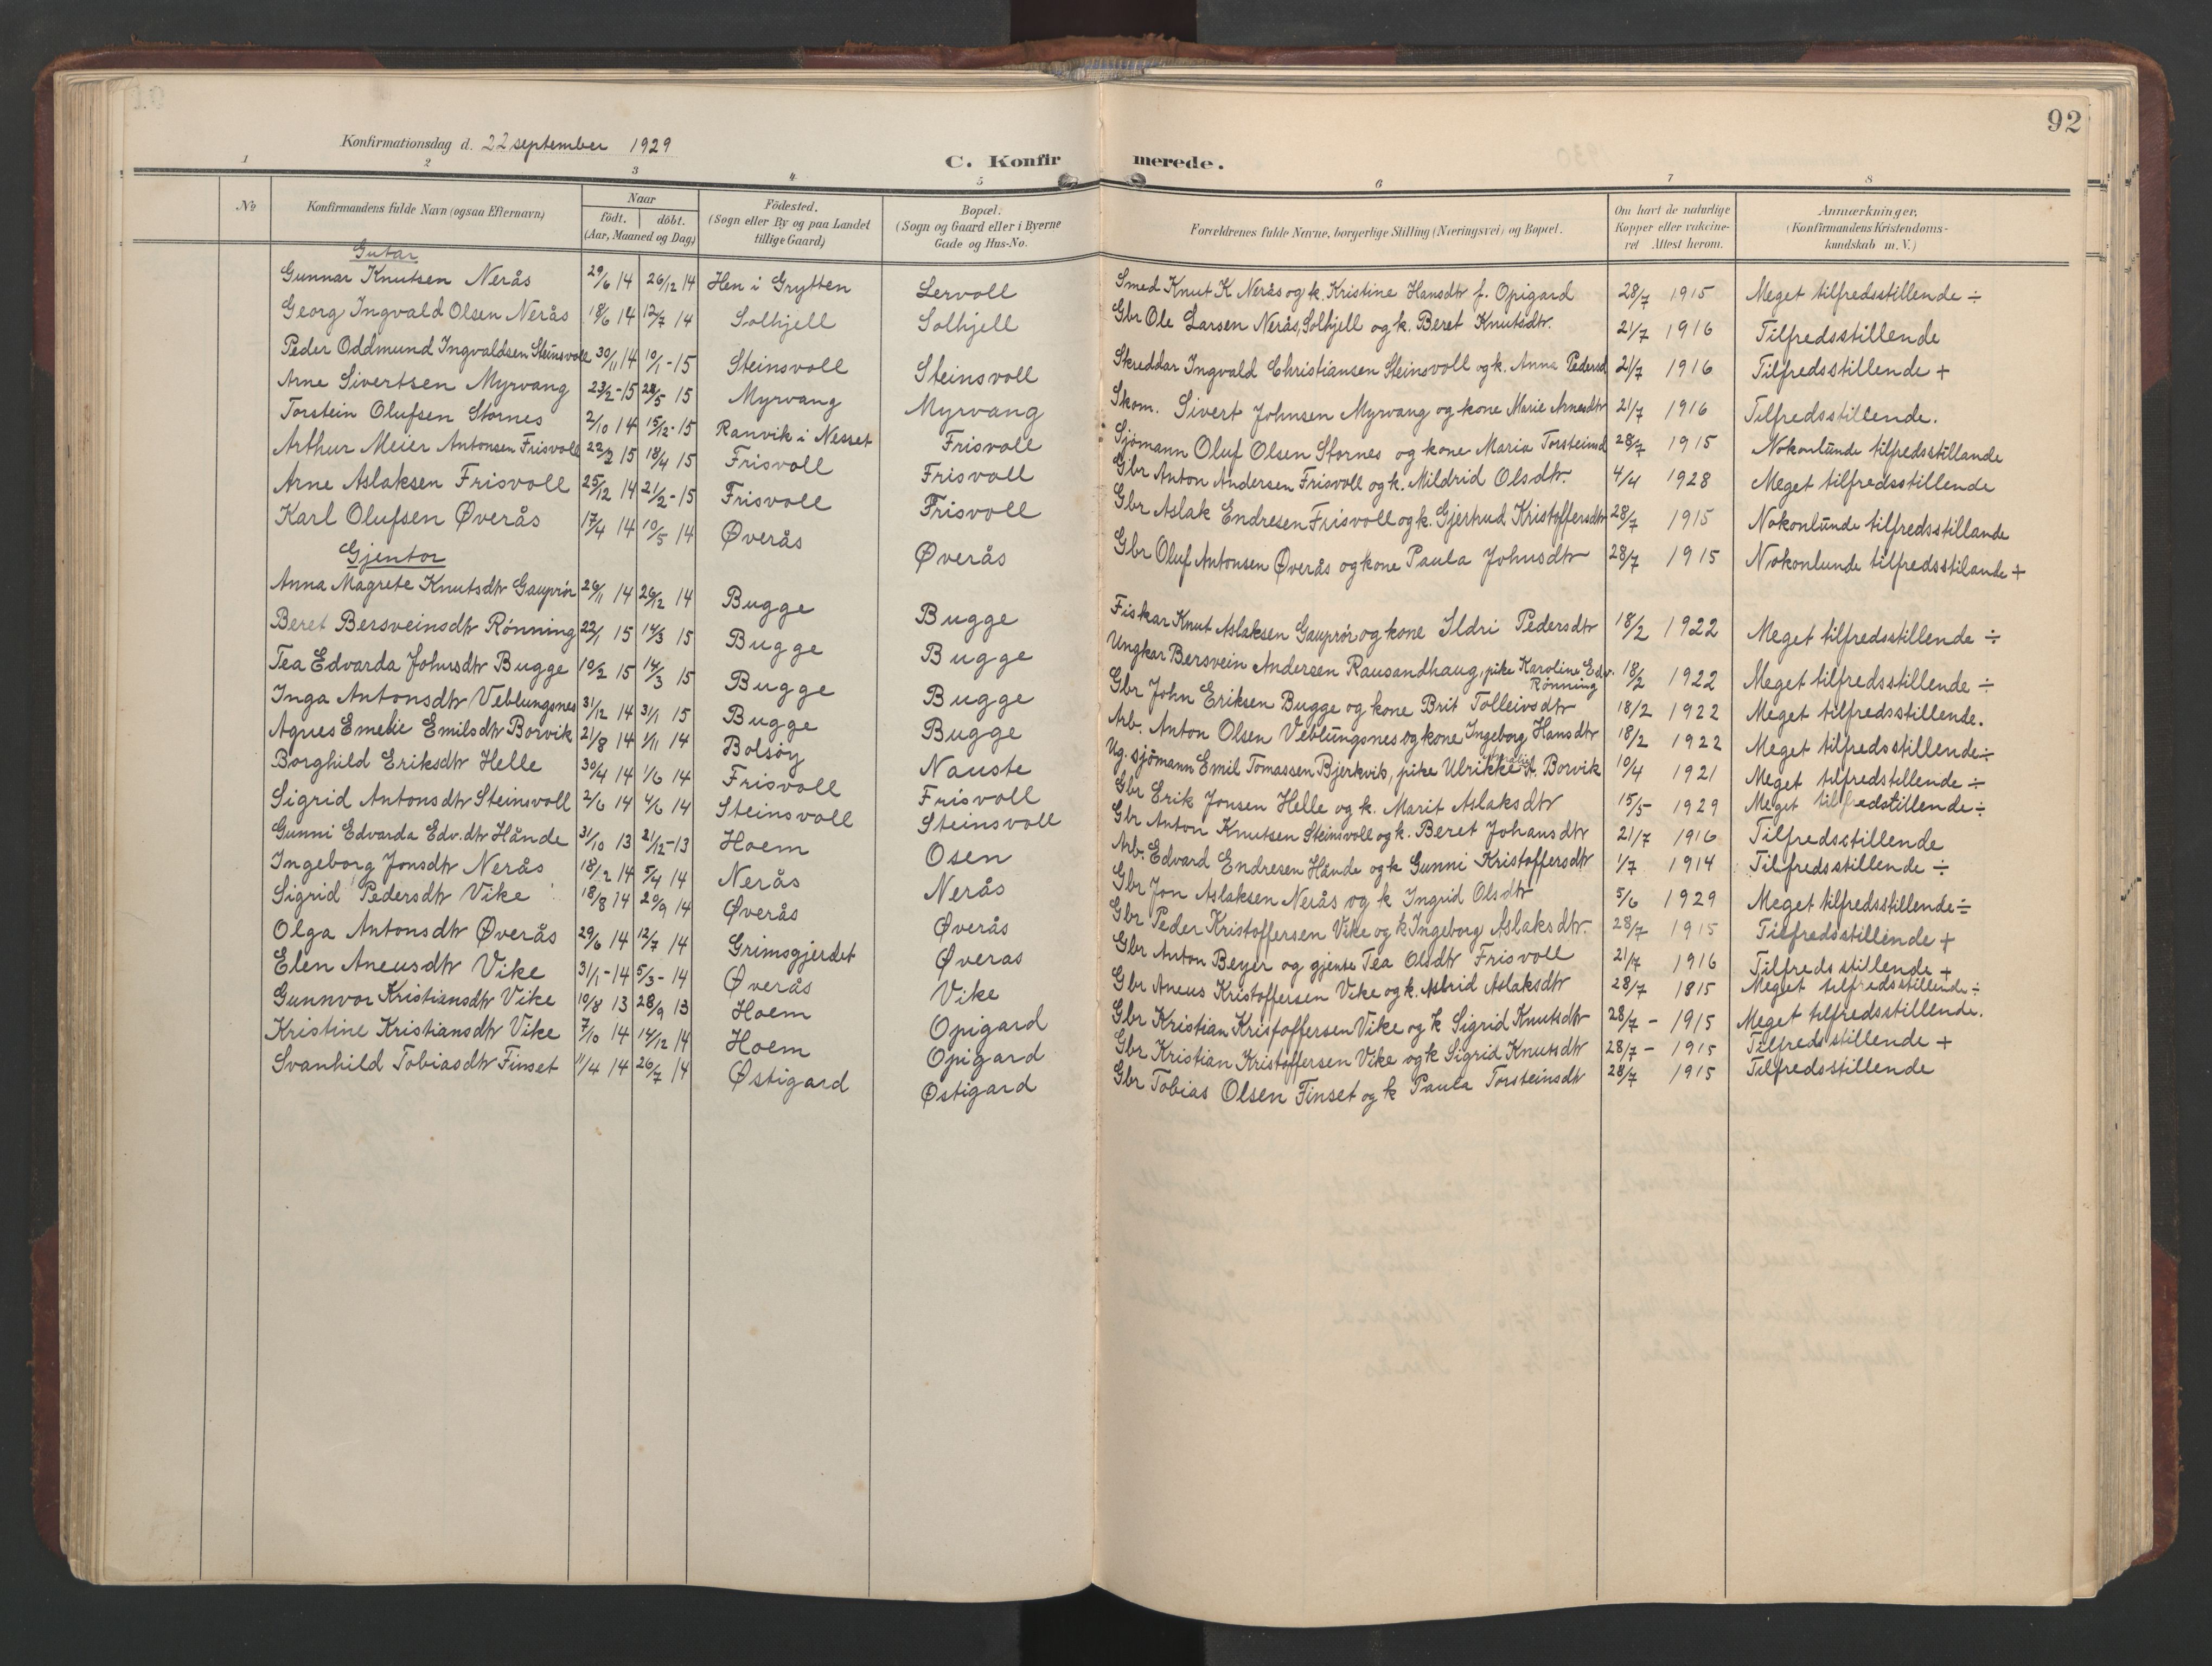 92
Konfirmationsdag d. 22 september 1929
C. Konfirmerede.
1 2 3 4 5 6 7 8
No
Konfirmandens fulde Navn (ogsaa Efternavn)
Naar
födt. döbt.
(Aar, Maaned og Dag)
Födested.
(Sogn eller By og paa Landet
tillige Gaard)
Bopæl.
(Sogn og Gaard eller i Byerne
Gade og Hus-No.
Forældrenes fulde Navne, borgerlige Stilling (Næringsvei) og Bopæl.
Om havt de naturlige
Kopper eller vakcine-
ret Attest herom.
Anmærkninger,
(Konfirmandens Kristendoms-
kundskab m. V.)
Gutar
Gunnar Knutsen Nerås 29/6 14 26/12 14 Hen i Grytten Lervoll Smed Knut K Nerås og k. Kristine Hansdtr f. Opigard 28/7 1915 Meget tilfredsstillende ÷
Georg Ingvald Olsen Nerås 18/6 14 12/7 14 Solhjell Solhjell Gbr Ole Larsen Nerås, Solhjell og k. Beret Knutsdtr. 21/7 1916 Tilfredsstillende
Peder Oddmund Ingvaldsen Steinsvoll 30/11 14 10/1-15 Steinsvoll Steinsvoll Skreddar Ingvald Christiansen Steinsvoll og k. Anna Pedersd 21/7 1916 Tilfredsstillende +
Arne Sivertsen Myrvang 23/2-15 28/5 15 Myrvang Myrvang Skom. Sivert Johnsen Myrvang og kone Marie Arnesdtr 21/7 1916 Tilfredsstillende.
Torstein Olufsen Stornes 2/10 14 15/12-15 Ranvik i Nesset Frisvoll Sjømann Oluf Olsen Stornes og kone Maria Torsteinsd 28/7 1915 Nokonlunde tilfredsstillande
Arthur Meier Antonsen Frisvoll 22/2 15 18/4 15 Frisvoll Frisvoll Gbr Anton Andersen Frisvoll og k. Mildrid Olsdtr. 4/4 1928 Meget tilfredsstillende
Arne Aslaksen Frisvoll 25/12 14 21/2-15 Frisvoll Frisvoll Gbr Aslak Endresen Frisvoll og k. Gjertrud Kristoffersdtr 28/7 1915 Nokonlunde tilfredsstillande
Karl Olufsen Øverås 17/4 14 10/5 14 Øverås Øverås Gbr Oluf Antonsen Øverås og kone Paula Johnsdtr 28/7 1915 Nokonlunde tilfredsstilande +
Gjentor
Anna Magrete Knutsdtr Gauprør 26/11 14 26/12 14 Bugge Bugge Fiskar Knut Aslaksen Gauprør og kone Ildri Pedersdtr 18/2 1922 Meget tilfredsstillende ÷
Beret Bersveinsdtr Rønning 22/1 15 14/3 15 Bugge Bugge Ungkar Bersvein Andersen Rausandhaug, pike Karoline Edv. Rønning 18/2 1922 Meget tilfredsstillende ÷
Tea Edvarda Johnsdtr Bugge 10/2 15 14/3 15 Bugge Bugge Gbr John Eriksen Bugge og kone Brit Tolleivsdtr 18/2 1922 Meget tilfredsstillende.
Inga Antonsdtr Veblungsnes 31/12 14 31/1 15 Bugge Bugge Arb. Anton Olsen Veblungsnes og kone Ingeborg Hansdtr 18/2 1922 Meget tilfredsstillende÷
Agnes Emelie Emilsdtr Borvik 21/8 14 1/11 14 Bolsøy Nauste Ug. sjömann Emil Tomassen Bjerkvik, pike Ulrikke A. Borvik 10/4 1921 Meget tilfredstillende ÷
Borghild Eriksdtr Helle 30/4 14 1/6 14 Frisvoll Frisvoll Gbr Erik Jonsen Helle og k. Marit Aslaksdtr 15/5 1929 Meget tilfredstillende÷
Sigrid Antonsdtr Steinsvoll 2/6 14 4/6 14 Steinsvoll Steinsvoll Gbr Anton Knutsen Steinsvoll og k. Beret Johansdtr 21/7 1916 Tilfredsstillende
Gunni Edvarda Edv.dtr Hånde 31/10 13 21/12-13 Hoem Osen Arb. Edvard Endresen Hånde og k Gunni Kristoffersdtr 1/7 1914 Tilfredsstillende ÷
Ingeborg Jonsdtr Nerås 18/2 14 5/4 14 Nerås Nerås Gbr Jon Aslaksen Nerås og k Ingrid Olsdtr 5/6 1929 Meget tilfredsstillende÷
Sigrid Pedersdtr Vike 18/8 14 20/9 14 Øverås Øverås Gbr Peder Kristoffersen Vike og k Ingeborg Aslaksdtr. 28/7 1915 Tilfredsstillende +
Olga Antonsdtr Øverås 29/6 14 12/7 14 Grimsgjerdet Øveras Gbr Anton Beyer og gjente Tea Olsdtr Frisvoll 21/7 1916 Tilfredsstillende +
Elen Aneusdtr Vike 31/1-14 5/3-14 Øverås Vike Gbr Aneus Kristoffersen Vike og k. Astrid Aslaksdtr 28/7 1815 Meget tilfredsstillende ÷
Gunnvor Kristiansdtr Vike 10/8 13 28/9 13 Hoem Opigard Gbr Kristian Kristoffersen Vike og k Sigrid Knutsdtr 28/7 - 1915 Meget tilfredsstillende.
Kristine Kristiansdtr Vike 7/10 14 14/12 14 Hoem Opigard Gbr Kristian Kristoffersen Vike og k Sigrid Knutsdtr 28/7 - 1915 Tilfredsstillende +
Svanhild Tobiasdtr Finset 11/4 14 26/7 14 Østigard Østigard Gbr Tobias Olsen Finset og k Paula Torsteinsdtr 28/7 1915 Tilfredsstillende